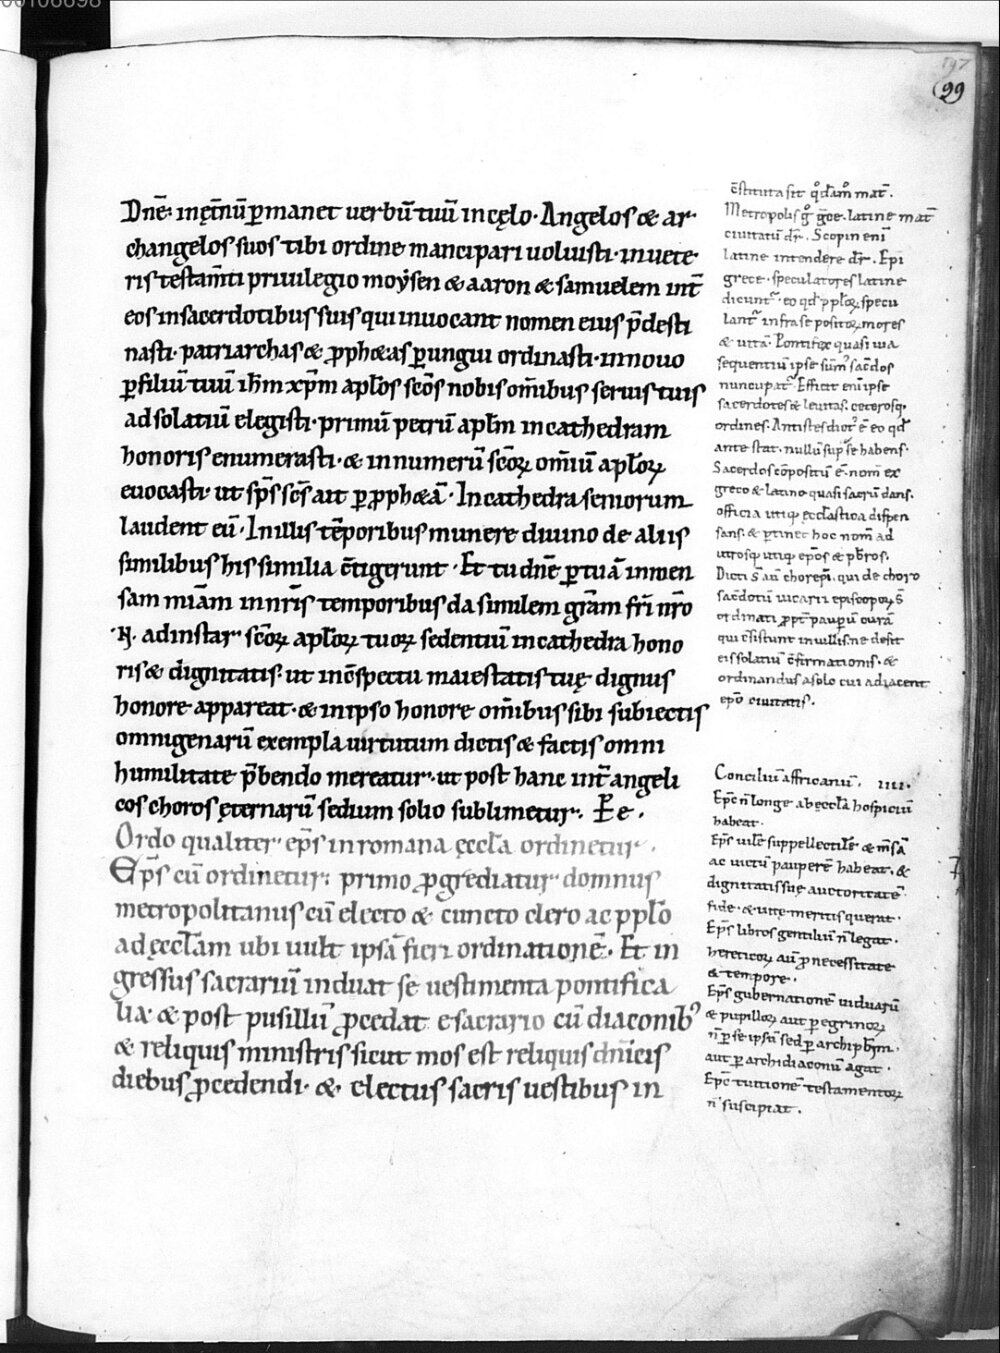 00106698
197
99
Dn̄e· in ęt̄nū p̄manet verbū tuū in cęlo· Angelos & ar
changelos suos tibi ordine mancipari uoluisti· in uete
ris testam̄ti priuilegio moẏsen & aaron & samuelem int̄
eos in sacerdotibus suis qui inuocant nomen eius p̄desti
nasti· patriarchas & ꝓph&as ꝑ ungui ordinasti· in nouo
ꝑ filiū tuū ih̄m xp̄m apl̄os sc̄os nobis om̄ibus seruis tuis
ad solatiū elegisti· primū petrū apl̄m in cathedram
honoris enumerasti· & in numerū sc̄oꝝ om̄iū apl̄oꝝ
euocasti· ut sp̄s sc̄s ait ꝑ ꝓph&ā· In cathedra seniorum
laudent eū· In illis tēporibus munere diuino de aliis
similibus his similia c̄tigerunt· Et tu dn̄e ꝑ tuā inmen
sam miām in nr̄is temporibus da similem gr̄am fr̄i nr̄o
·N̄· ad instar sc̄oꝝ apl̄oꝝ tuoꝝ sedentiū in cathedra hono
ris & dignitatis· ut in c̄spectu maiestatis tuę dignus
honore appareat· & in ipso honore om̄ibus sibi subiectis
omnigenarū exempla uirtutum dictis & factis omni
humilitate p̄bendo mereatur· ut post hanc int̄ angeli
cos choros ęternarū sedium solio sublimetur· P̄e·
Ordo qualiter ep̄s in romana ęccl̄a ordinetur·
Ep̄s cū ordinetur· primo ꝓgrediatur domnus
metropolitanus cū electo & cuncto clero ac ppl̄o
ad ęccl̄am ubi uult ipsā fieri ordinationē· Et in
gressus sacrariū induat se uestimenta pontifica
lia· & post pusillū ꝓcedat e sacrario cū diaconib'
& reliquis ministris sicut mos est reliquis dn̄icis
diebus ꝓcedendi· & electus sacris uestibus in
c̄stituta sit q°dām° mat̄·
Metropolis g° gc̄e· latine mat̄
ciuitatū dr̄· Scopin eni
latine intendere dr̄· Epi
grece· speculatores latine
dicunt̄· eo qd̄ ppl̄oꝝ specu
lant̄ infra se positoꝝ mores
& uitā· Pontifex quasi uia
sequentiū ipse sum̄' sac̄dos
nuncupat̄· Efficit eni ipse
sacerdotes & leuitas· ceterosq·
ordines· Antistes dict' ē eo qd̄
ante stat· nullū sup̄ se habens·
Sacerdos cōpositū ē· nom̄ ex
greco & latino quasi sacrū dans·
officia utiq ęccl̄astica dispen
sans· & ꝑtinet hoc nom̄ ad
utrosq utiq ep̄os & p̄bros·
Dicti s̄ aū chorepi· qui de choro
sac̄dotū uicarii episcopoꝝ s̄
ordinati ꝓpt̄ pauperū curā
qui c̄sistunt in uillis· ne desit
eis solatiū c̄firmationis· &
ordinandus a solo cui adiacent
ep̄o ciuitatis·
Conciliū affricanū· IIII·
Ep̄c n̄ longe ab eccl̄a hospiciū
habeat·
Ep̄s uile suppellectilē & m̄sā
ac uictū pauperē habeat· &
dignitatis suę auctoritatē
fide· & uitę meritis querat·
Ep̄s libros gentiliū n̄ legat·
hereticoꝝ aū ꝓ necessitate
& tempore·
Ep̄s gubernationē uiduarū
& pupilloꝝ aut peregrinoꝝ
n̄ ꝑ se ipsū sed ꝑ archipb̄rm·
aut ꝑ archidiaconū agat·
Ep̄c tuitionē testamentoꝝ
n̄ suscipiat·